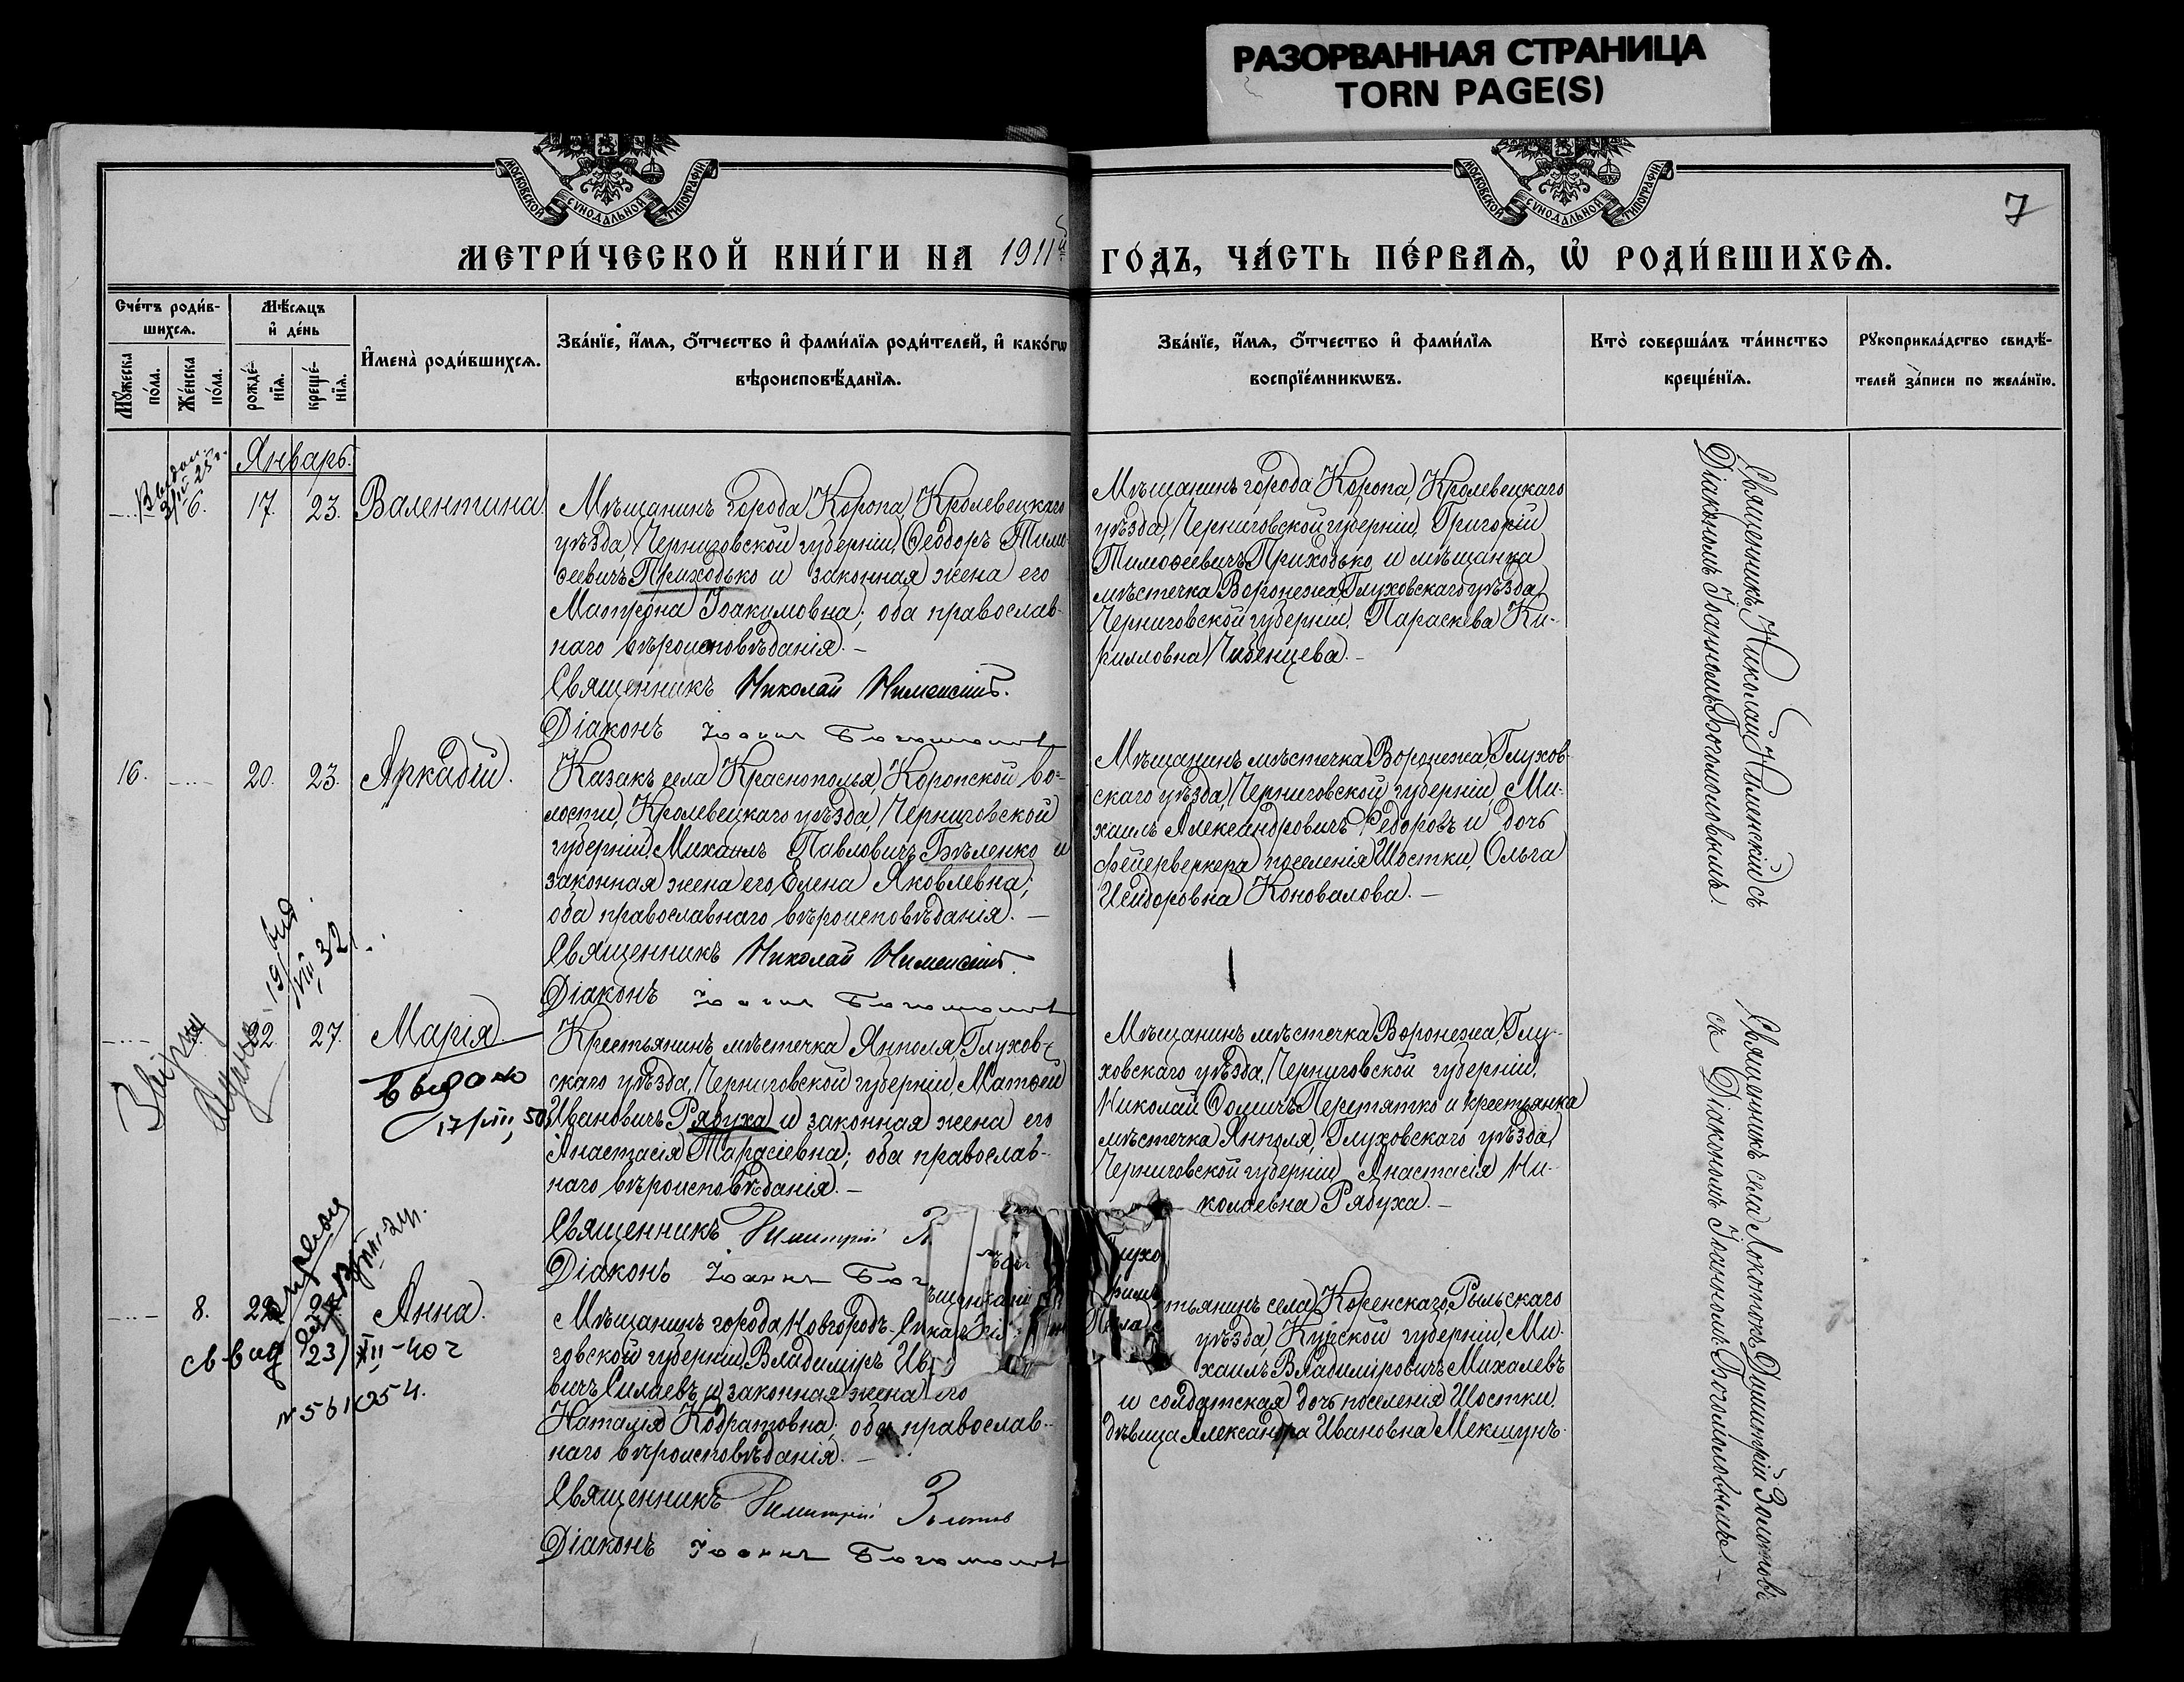 РАЗОРВАННАЯ СТРАНИЦА
TORN PAGE(S)
МОСКОВСКОЙ СѴНОДАЛЬНОЙ ТИПОГРАФІИ
МОСКОВСКОЙ СѴНОДАЛЬНОЙ ТИПОГРАФІИ
7
МЕТРИ́ЧЕСКОЙ КНИ́ГИ НА 1911й ГО́ДЪ, ЧА́СТЬ ПЕ́РВАѦ, Ѡ҆ РОДИ́ВШИХСѦ.
Сче́тъ роди́в-
шихсѧ.
Мꙋ́жеска по́ла.
Же́нска по́ла.
Мѣ́сѧцъ
и҆ де́нь
рожде́-
нїѧ.
креще́-
нїѧ.
И҆мена̀ роди́вшихсѧ.
Зва́нїе, и҆́мѧ, ѻ҆́тчество и҆ фами́лїѧ роди́телей, и҆ како́гѡ
вѣроисповѣ́данїѧ.
Зва́нїе, и҆́мѧ, ѻ҆́тчество и҆ фами́лїѧ
воспрїе́мникѡвъ.
Кто̀ соверша́лъ та́инство
креще́нїѧ.
Рꙋкоприкла́дство свидѣ́-
телей за́писи по жела́нїю.
Январь.
6. 17. 23. Валентина.
Мѣщанинъ города Коропа, Кролевецкаго
уѣзда, Черниговской губерніи, Ѳеодоръ Тимо-
ѳеевичъ Приходько и законная жена его
Матрона Іоакимовна; оба православ-
наго вѣроисповѣданія. –
Священникъ Николай
Діаконъ Іоаннъ Богомоловъ
Мѣщанинъ города Коропа, Кролевецкаго
уѣзда, Черниговской губерніи, Григорій
Тимоѳеевичъ Приходько и мѣщанка
мѣстечка Воронежа, Глуховскаго уѣзда,
Черниговской губерніи, Параскева Ки-
рилловна –
Священникъ Николай съ
Діакономъ Іоанномъ Богомоловымъ.
16. 20. 23. Аркадій.
Казакъ села Краснополья, Коропской во-
лости, Кролевецкаго уѣзда, Черниговской
губерніи, Михаилъ Павловичъ Бѣленко и
законная жена его Елена Яковлевна;
оба православнаго вѣроисповѣданія. –
Священникъ Николай
Діаконъ Іоаннъ Богомоловъ
Мѣщанинъ мѣстечка Воронежа, Глухов-
скаго уѣзда, Черниговской губерніи, Ми-
хаилъ Александровичъ Ѳедоровъ и дочь
фейерверкера поселенія Шостки, Ольга
Исидоровна Коновалова. –
22. 27. Марія.
выдано
17/VIII, 50
19/VIII, 32
Крестьянинъ мѣстечка Янполя, Глухов-
скаго уѣзда, Черниговской губерніи, Матѳей
Ивановичъ Рябуха и законная жена его
Анастасія Тарасіевна; оба православ-
наго вѣроисповѣданія. –
Священникъ Димитрій З
Діаконъ Іоаннъ Бог
Мѣщанинъ мѣстечка Воронежа, Глу-
ховскаго уѣзда, Черниговской губерніи,
Николай Ѳомичъ Перетятко и крестьянка
мѣстечка Янполя, Глуховскаго уѣзда,
Черниговской губерніи, Анастасія Ни-
колаевна Рябуха. –
Священникъ села Локотокъ Димитрій Золотовъ
съ Діакономъ Іоанномъ Богомоловымъ. –
8. 22. Анна.
23/XII-40 г
№ 561054.
Мѣщанинъ города Новгородъ-
говской губерніи, Владиміръ Ив
вичъ Силаевъ и законная жена его
Наталія Кодратовна; оба православ-
наго вѣроисповѣданія. –
Священникъ Димитрій Золотовъ
Діаконъ Іоаннъ Богомоловъ
тьянинъ села Коренскаго, Рыльскаго
уѣзда, Курской губерніи, Ми-
хаилъ Владиміровичъ Михалевъ
и солдатская дочь поселенія Шостки,
дѣвица Александра Ивановна Мекшунъ.